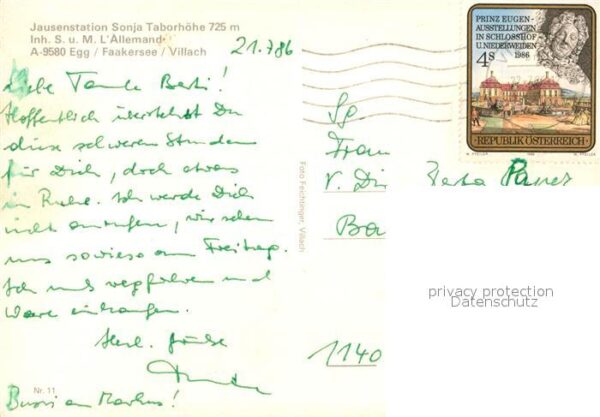 Jausenstation Sonja Taborhöhe 725 m
Inh. S. u. M. L'Allemand
A-9580 Egg / Faakersee / Villach
21.7.86
Liebe Tante Berti!
Hoffentlich überstehst Du
diese schweren Stunden
für Dich, doch etwas
in Ruhe. Ich werde Dich
nicht anrufen, wir sehen
uns sowieso am Freitag.
Ich muß wegfahren und
Ware einkaufen.
Herzl. Grüße
Bussi an Markus!
Nr. 11
Foto Feichtinger, Villach
PRINZ EUGEN-
AUSSTELLUNGEN
IN SCHLOSSHOF
U. NIEDERWEIDEN
1986
4 S
REPUBLIK ÖSTERREICH
Sg
Frau
V. Dir
Ba
1140
privacy protection
Datenschutz